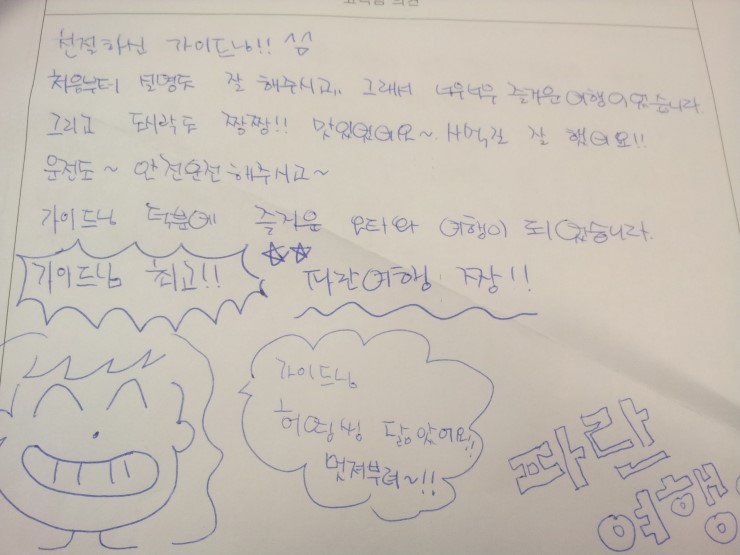 고객님 의견
친절하신 가이드님!! ^^
처음부터 설명도 잘 해주시고,, 그래서 너무너무 즐거운 여행이었습니다.
그리고 도시락도 짱짱!! 맛있었어요~ 새벽길 잘 했어요!!
운전도~ 안전운전해주시고~
가이드님 덕분에 즐거운 오타와 여행이 되었습니다.
가이드님 최고!! ☆☆ 파란여행 짱!!
가이드님
허영씽 닮았어요!!
멋져부려~!!
파란
여행